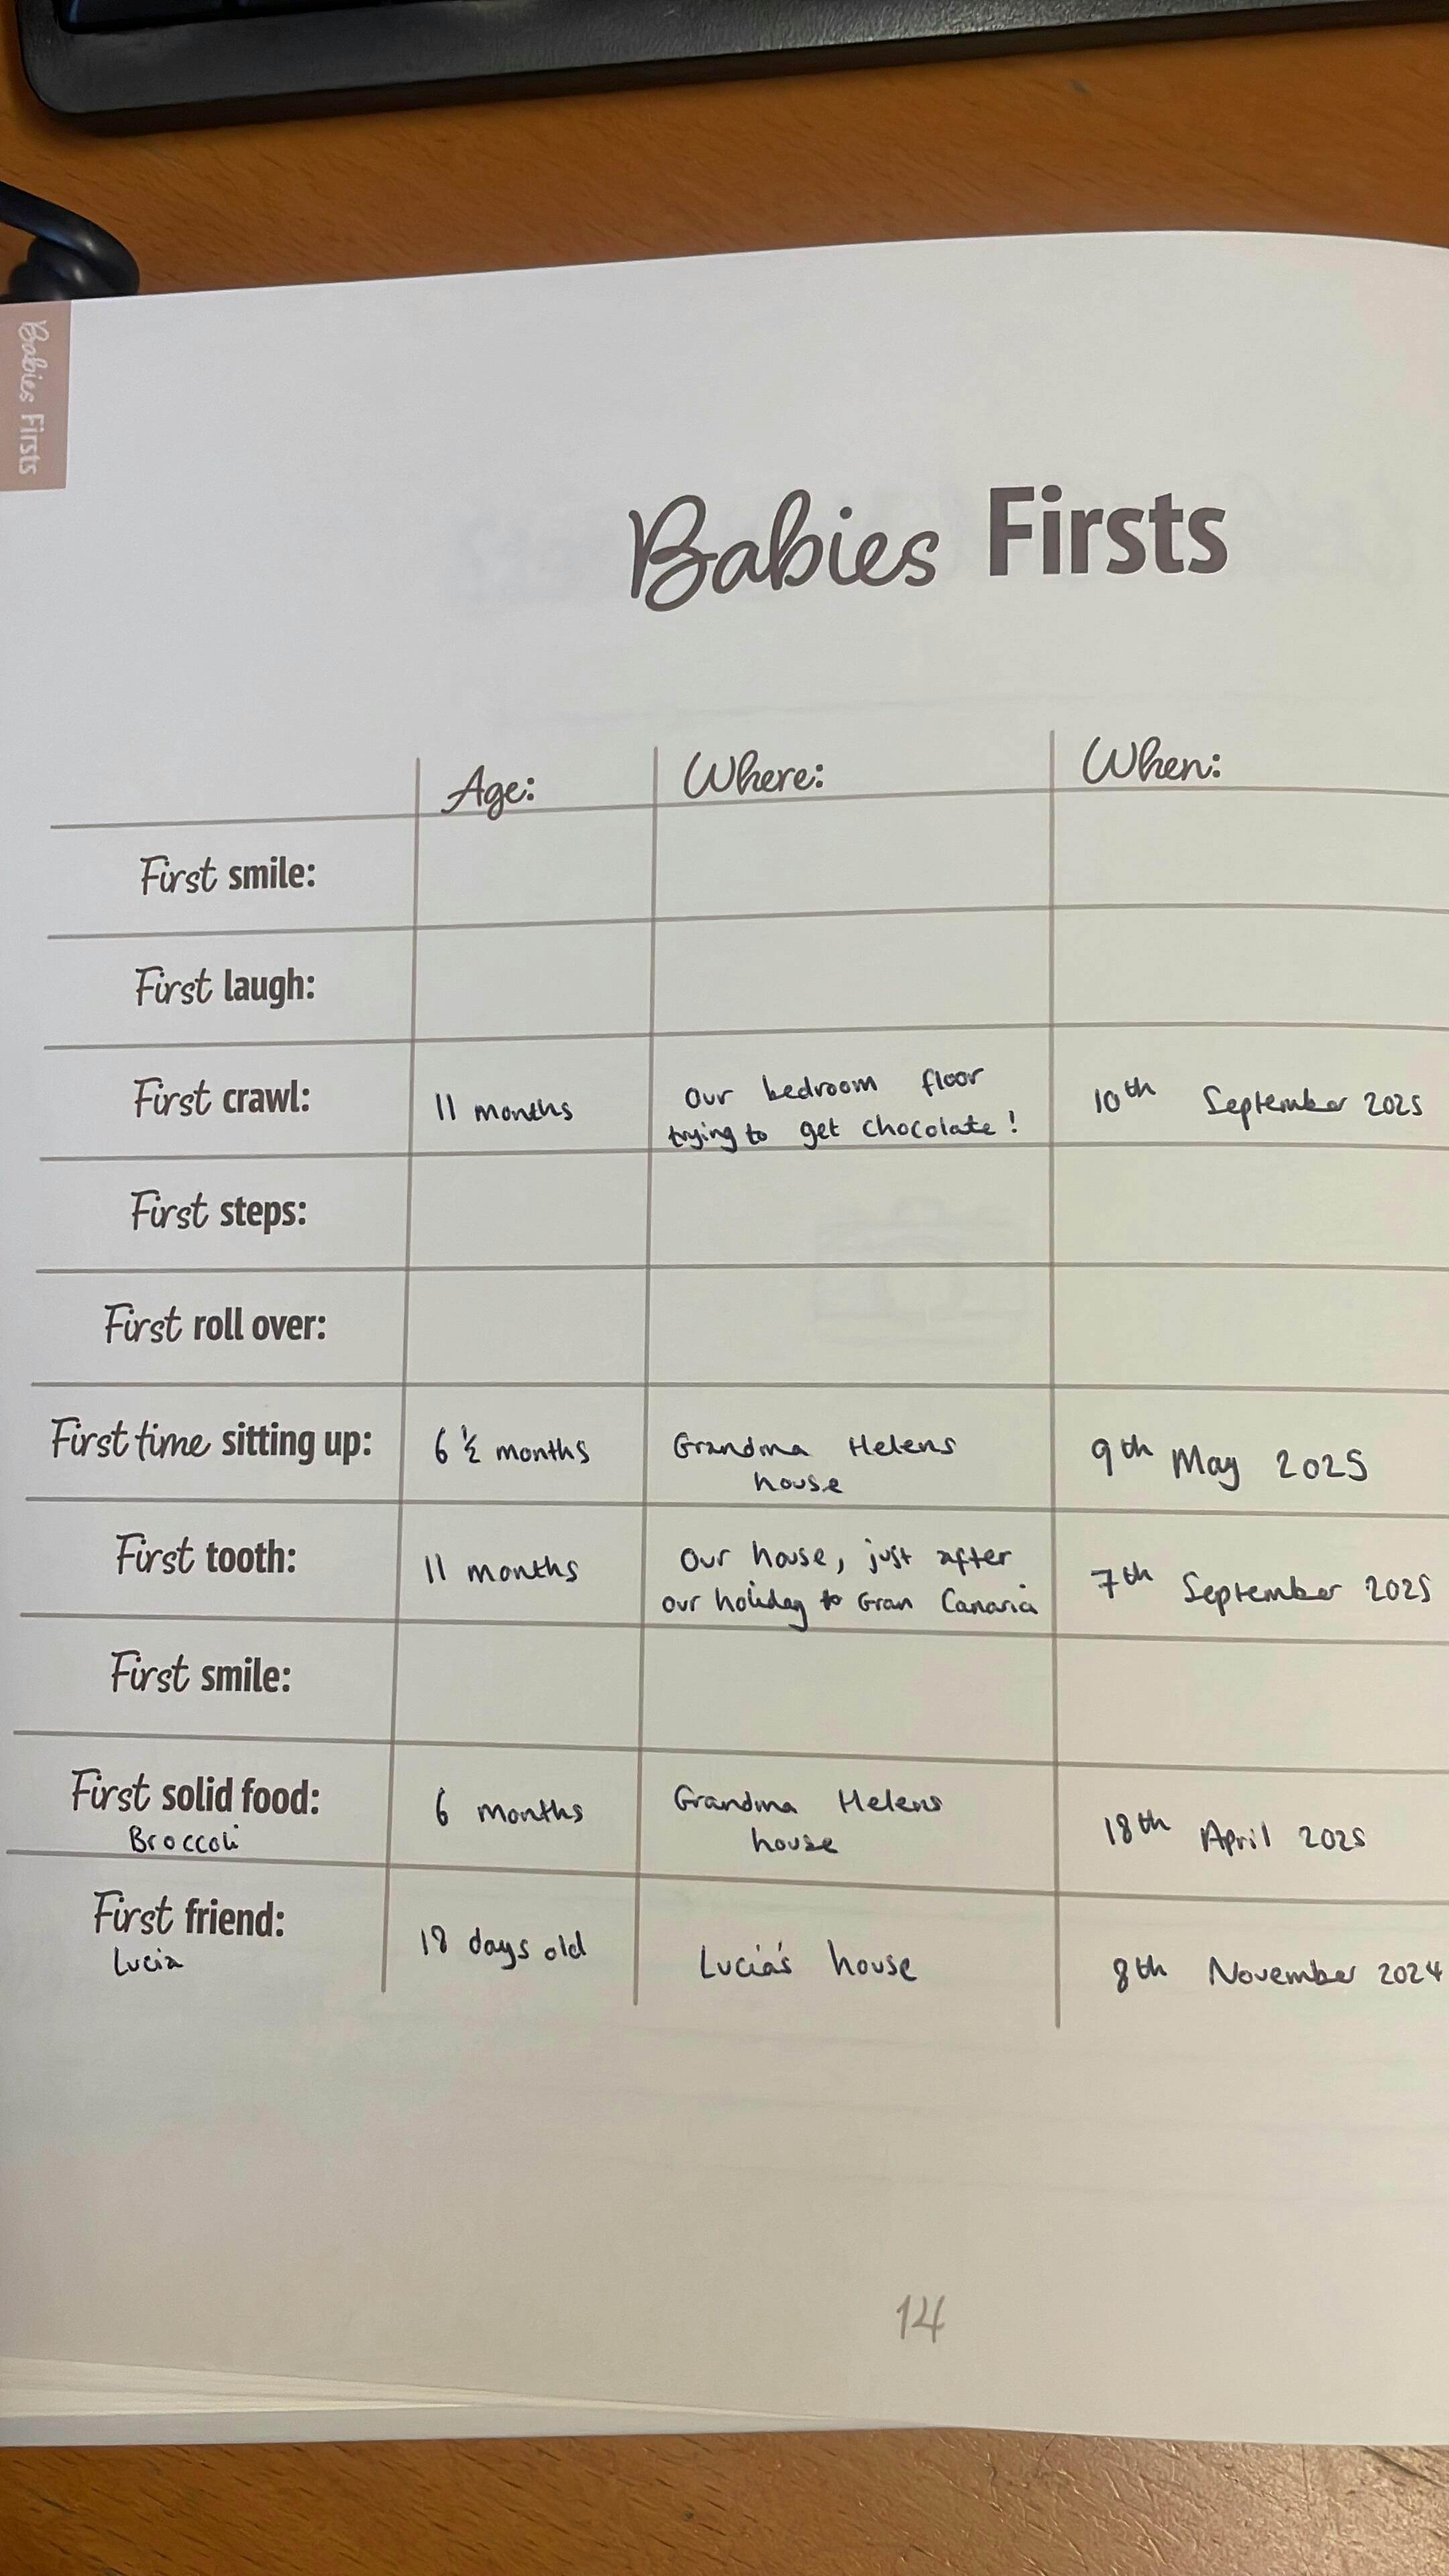 Babies Firsts
Babies Firsts
Age: Where: When:
First smile:
First laugh:
First crawl: 11 months our bedroom floor 10th September 2025
trying to get chocolate!
First steps:
First roll over:
First time sitting up: 6 ½ months Grandma Helens 9th May 2025
house
First tooth: 11 months Our house, just after 7th September 2025
our holiday to Gran Canaria
First smile:
First solid food: 6 months Grandma Helens 18th April 2025
Broccoli house
First friend: 18 days old Lucia's house 8th November 2024
Lucia
14